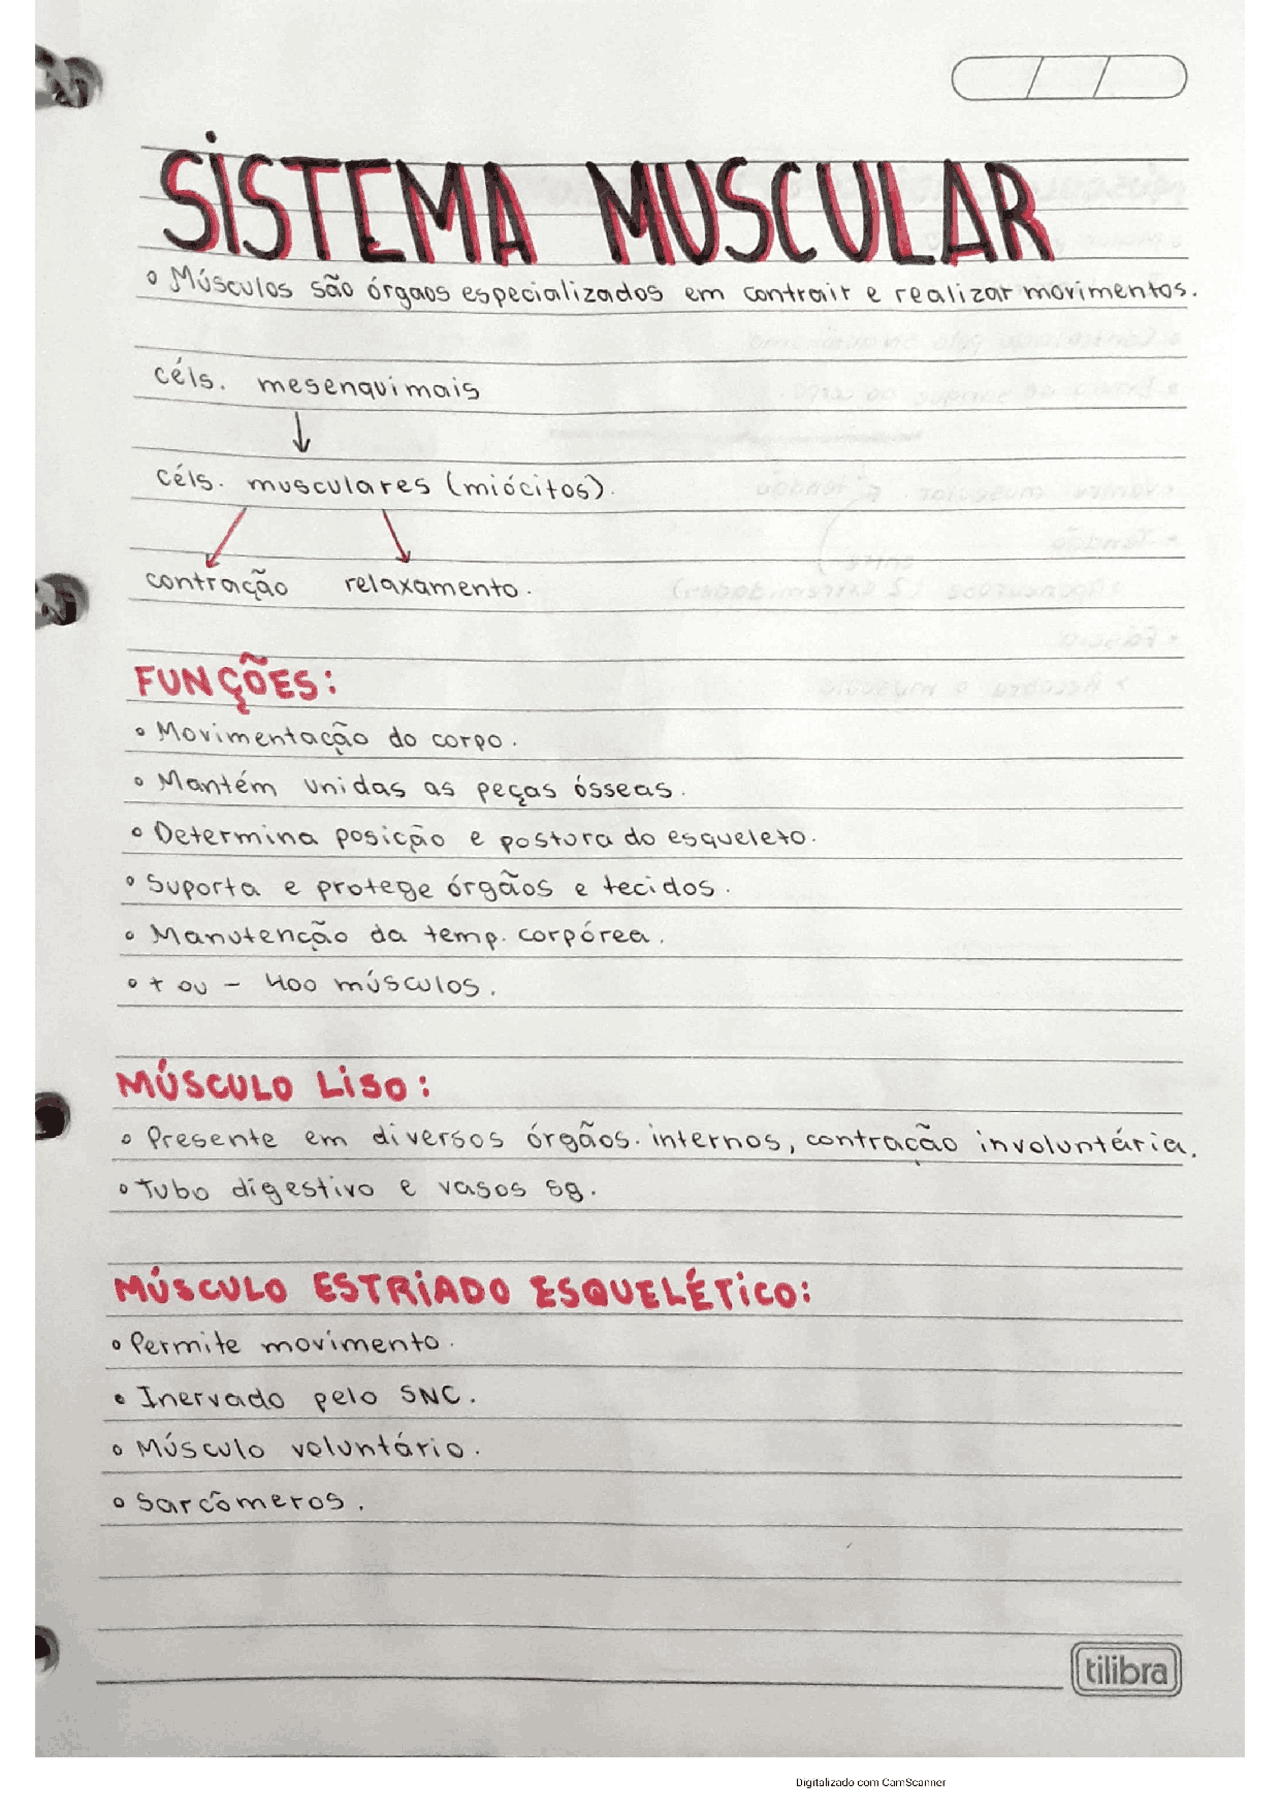 SISTEMA MUSCULAR
◦ Músculos são órgaos especializados em contrair e realizar movimentos.
céls. mesenquimais
↓
céls. musculares (miócitos).
contração relaxamento.
FUNÇÕES:
◦ Movimentação do corpo.
◦ Mantém unidas as peças ósseas.
◦ Determina posição e postura do esqueleto.
◦ Suporta e protege órgãos e tecidos.
◦ Manutenção da temp. corpórea.
◦ + ou - 400 músculos.
MÚSCULO LISO:
◦ Presente em diversos órgãos. internos, contração involuntária.
◦ Tubo digestivo e vasos sg.
MÚSCULO ESTRIADO ESQUELÉTICO:
◦ Permite movimento.
◦ Inervado pelo SNC.
◦ Músculo voluntário.
◦ Sarcômeros.
tilibra
Digitalizado com CamScanner